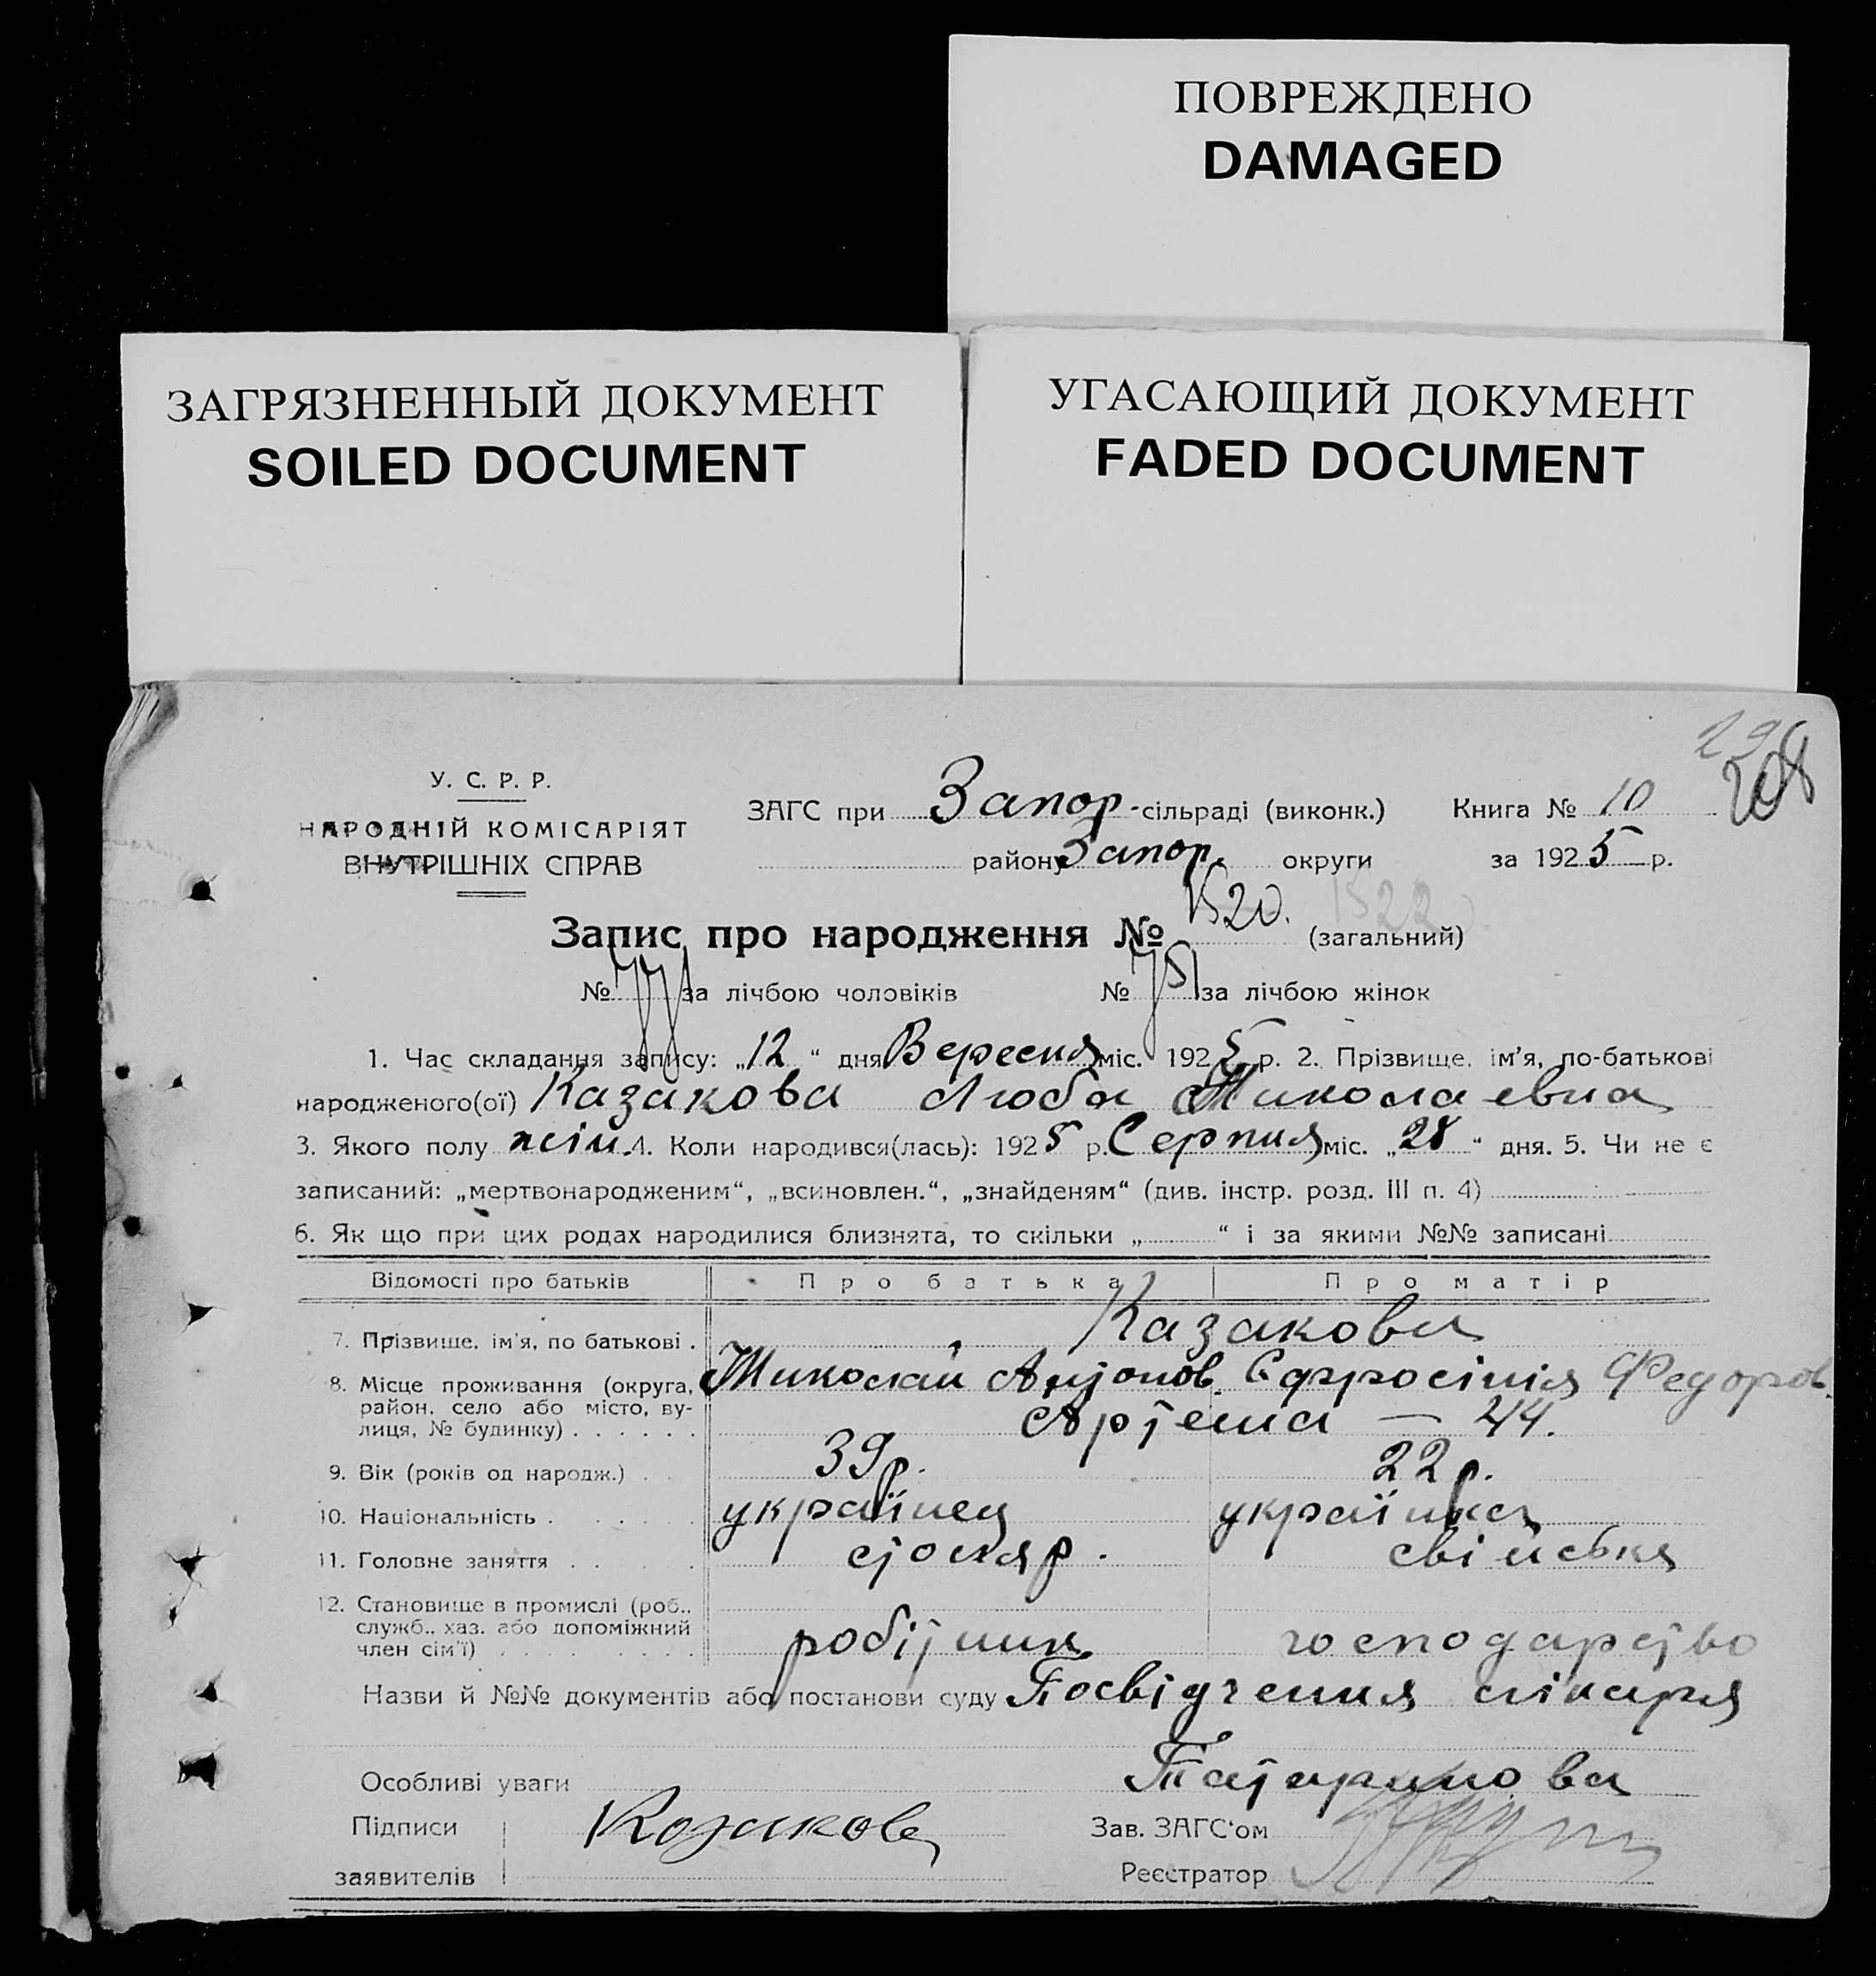 ПОВРЕЖДЕНО
DAMAGED
ЗАГРЯЗНЕННЫЙ ДОКУМЕНТ
SOILED DOCUMENT
УГАСАЮЩИЙ ДОКУМЕНТ
FADED DOCUMENT
29
208
У. С. Р. Р.
НАРОДНІЙ КОМІСАРІЯТ
ВНУТРІШНІХ СПРАВ
ЗАГС при Запор-сільраді (виконк.) Книга № 10
району Запор. округи за 1925 р.
Запис про народження № 1520. 1522 (загальний)
№ за лічбою чоловіків № 751 за лічбою жінок
1. Час складання запису: „12“ дня Вересня міс. 1925 р. 2. Прізвище, ім’я, по-батькові
народженого(ої) Казакова Люба Миколаевна
3. Якого полу жін. 4. Коли народився(лась): 1925 р. Серпня міс. „28“ дня. 5. Чи не є
записаний: „мертвонародженим“, „всиновлен.“, „знайденям“ (див. інстр. розд. III п. 4)
6. Як що при цих родах народилися близнята, то скільки „ “ і за якими №№ записані
Відомості про батьків Про батька Про матір
7. Прізвище, ім’я, по батькові . Казакови
Миколай Антонов. Єфросінія Федоров.
8. Місце проживання (округа, район, село або місто, вулиця, № будинку) . . . . . . Артема — 44.
9. Вік (років од народж.) . . 39 р. 22 р.
10. Національність . . . . . українец українка
11. Головне заняття . . . . столяр. свійське
12. Становище в промислі (роб., служб., хаз. або допоміжний член сім’ї) . . . . . . . . . робітник господарство
Назви й №№ документів або постанови суду Посвідчення лікаря
Татаринова
Особливі уваги
Підписи Козакова Зав. ЗАГС‘ом
заявителів Реєстратор